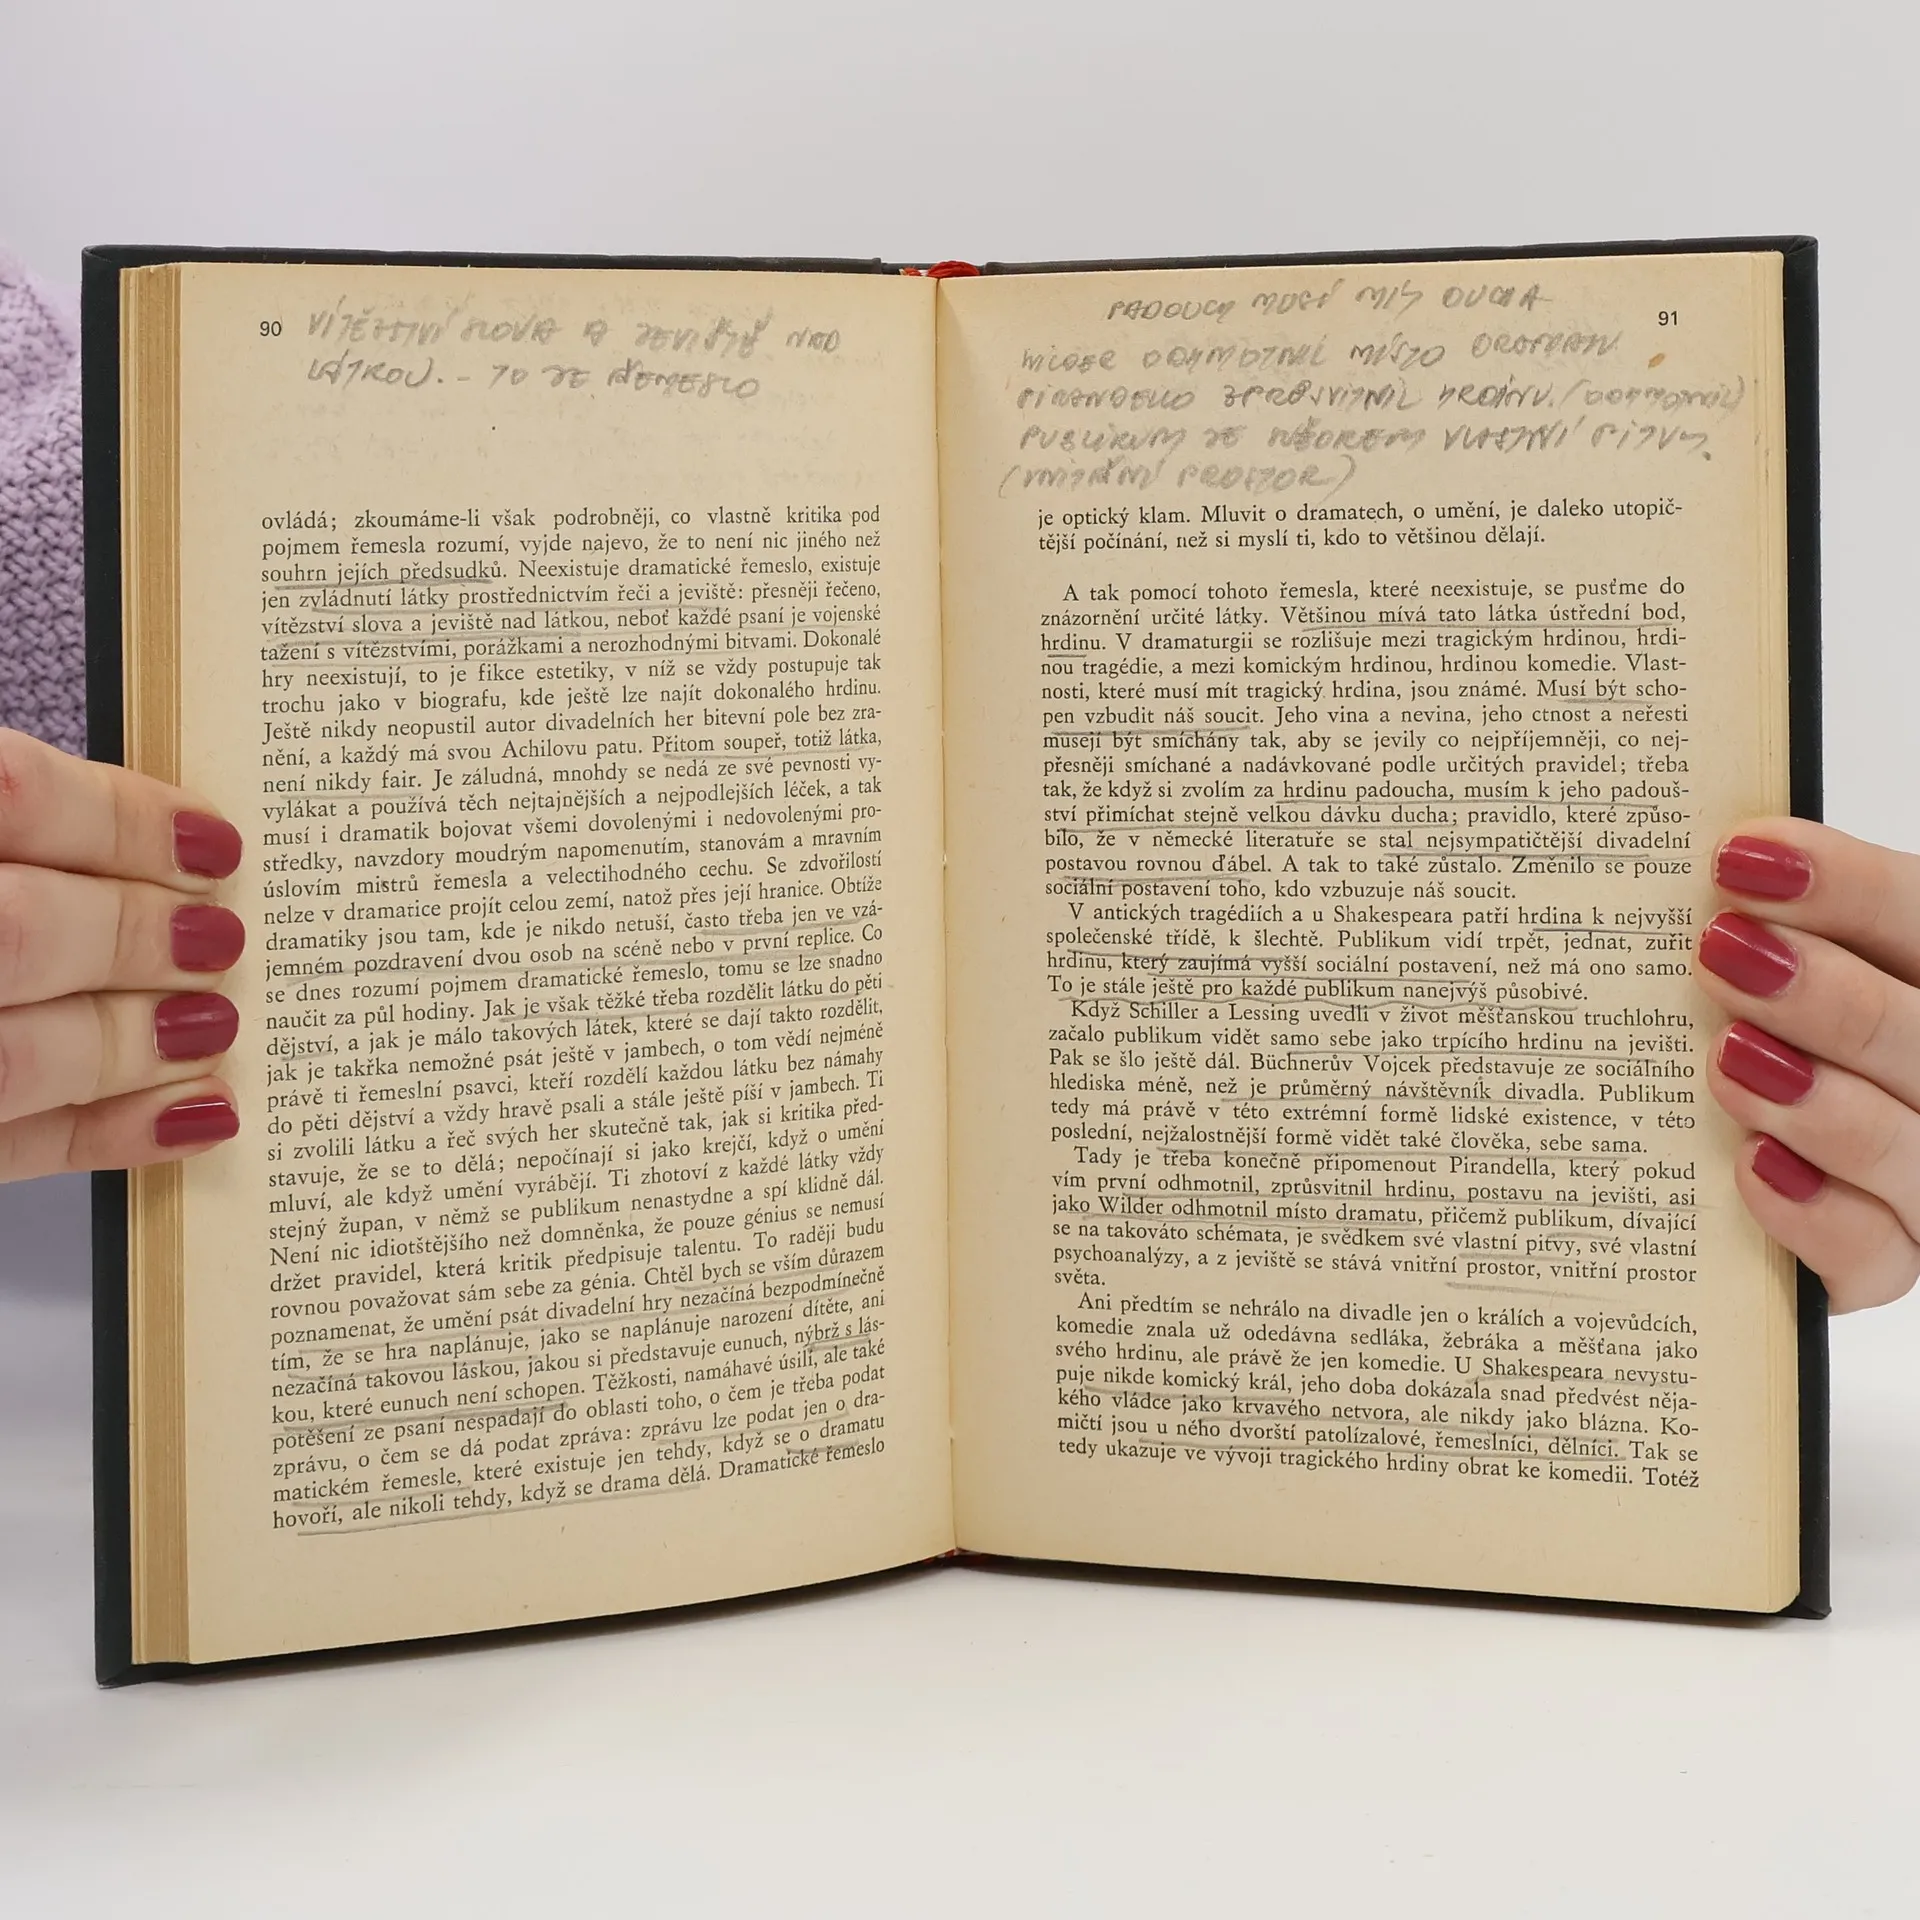 90
VÍTĚZSTVÍ SLOVA A JEVIŠTĚ NAD
LÁTKOU. – TO JE ŘEMESLO
ovládá; zkoumáme-li však podrobněji, co vlastně kritika pod
pojmem řemesla rozumí, vyjde najevo, že to není nic jiného než
souhrn jejích předsudků. Neexistuje dramatické řemeslo, existuje
jen zvládnutí látky prostřednictvím řeči a jeviště: přesněji řečeno,
vítězství slova a jeviště nad látkou, neboť každé psaní je vojenské
tažení s vítězstvími, porážkami a nerozhodnými bitvami. Dokonalé
hry neexistují, to je fikce estetiky, v níž se vždy postupuje tak
trochu jako v biografu, kde ještě lze najít dokonalého hrdinu.
Ještě nikdy neopustil autor divadelních her bitevní pole bez zra-
nění, a každý má svou Achilovu patu. Přitom soupeř, totiž látka,
není nikdy fair. Je záludná, mnohdy se nedá ze své pevnosti vy-
vylákat a používá těch nejtajnějších a nejpodlejších léček, a tak
musí i dramatik bojovat všemi dovolenými i nedovolenými pro-
středky, navzdory moudrým napomenutím, stanovám a mravním
úslovím mistrů řemesla a velectihodného cechu. Se zdvořilostí
nelze v dramatice projít celou zemí, natož přes její hranice. Obtíže
dramatiky jsou tam, kde je nikdo netuší, často třeba jen ve vzá-
jemném pozdravení dvou osob na scéně nebo v první replice. Co
se dnes rozumí pojmem dramatické řemeslo, tomu se lze snadno
naučit za půl hodiny. Jak je však těžké třeba rozdělit látku do pěti
dějství, a jak je málo takových látek, které se dají takto rozdělit,
jak je takřka nemožné psát ještě v jambech, o tom vědí nejméně
právě ti řemeslní psavci, kteří rozdělí každou látku bez námahy
do pěti dějství a vždy hravě psali a stále ještě píší v jambech. Ti
si zvolili látku a řeč svých her skutečně tak, jak si kritika před-
stavuje, že se to dělá; nepočínají si jako krejčí, když o umění
mluví, ale když umění vyrábějí. Ti zhotoví z každé látky vždy
stejný župan, v němž se publikum nenastydne a spí klidně dál.
Není nic idiotštějšího než domněnka, že pouze génius se nemusí
držet pravidel, která kritik předpisuje talentu. To raději budu
rovnou považovat sám sebe za génia. Chtěl bych se vším důrazem
poznamenat, že umění psát divadelní hry nezačíná bezpodmínečně
tím, že se hra naplánuje, jako se naplánuje narození dítěte, ani
nezačíná takovou láskou, jakou si představuje eunuch, nýbrž s lás-
kou, které eunuch není schopen. Těžkosti, namáhavé úsilí, ale také
potěšení ze psaní nespadají do oblasti toho, o čem je třeba podat
zprávu, o čem se dá podat zpráva: zprávu lze podat jen o dra-
matickém řemesle, které existuje jen tehdy, když se o dramatu
hovoří, ale nikoli tehdy, když se drama dělá. Dramatické řemeslo
PADOUCH MUSÍ MÍT DUCHA
91
WILDER ODHMOTNIL MÍSTO DRAMATU
PIRANDELLO ZPRŮSVITNIL HRDINU. (ODHMOTNIL)
PUBLIKUM JE VLASTNÍ PITVY.
(VNITŘNÍ PROSTOR)
je optický klam. Mluvit o dramatech, o umění, je daleko utopič-
tější počínání, než si myslí ti, kdo to většinou dělají.
A tak pomocí tohoto řemesla, které neexistuje, se pusťme do
znázornění určité látky. Většinou mívá tato látka ústřední bod,
hrdinu. V dramaturgii se rozlišuje mezi tragickým hrdinou, hrdi-
nou tragédie, a mezi komickým hrdinou, hrdinou komedie. Vlast-
nosti, které musí mít tragický hrdina, jsou známé. Musí být scho-
pen vzbudit náš soucit. Jeho vina a nevina, jeho ctnost a neřesti
musejí být smíchány tak, aby se jevily co nejpříjemněji, co nej-
přesněji smíchané a nadávkované podle určitých pravidel; třeba
tak, že když si zvolím za hrdinu padoucha, musím k jeho padouš-
ství přimíchat stejně velkou dávku ducha; pravidlo, které způso-
bilo, že v německé literatuře se stal nejsympatičtější divadelní
postavou rovnou ďábel. A tak to také zůstalo. Změnilo se pouze
sociální postavení toho, kdo vzbuzuje náš soucit.
V antických tragédiích a u Shakespeara patří hrdina k nejvyšší
společenské třídě, k šlechtě. Publikum vidí trpět, jednat, zuřit
hrdinu, který zaujímá vyšší sociální postavení, než má ono samo.
To je stále ještě pro každé publikum nanejvýš působivé.
Když Schiller a Lessing uvedli v život měšťanskou truchlohru,
začalo publikum vidět samo sebe jako trpícího hrdinu na jevišti.
Pak se šlo ještě dál. Büchnerův Vojcek představuje ze sociálního
hlediska méně, než je průměrný návštěvník divadla. Publikum
tedy má právě v této extrémní formě lidské existence, v této
poslední, nejžalostnější formě vidět také člověka, sebe sama.
Tady je třeba konečně připomenout Pirandella, který pokud
vím první odhmotnil, zprůsvitnil hrdinu, postavu na jevišti, asi
jako Wilder odhmotnil místo dramatu, přičemž publikum, dívající
se na takováto schémata, je svědkem své vlastní pitvy, své vlastní
psychoanalýzy, a z jeviště se stává vnitřní prostor, vnitřní prostor
světa.
Ani předtím se nehrálo na divadle jen o králích a vojevůdcích,
komedie znala už odedávna sedláka, žebráka a měšťana jako
svého hrdinu, ale právě že jen komedie. U Shakespeara nevystu-
puje nikde komický král, jeho doba dokázala snad předvést něja-
kého vládce jako krvavého netvora, ale nikdy jako blázna. Ko-
mičtí jsou u něho dvorští patolízalové, řemeslníci, dělníci. Tak se
tedy ukazuje ve vývoji tragického hrdiny obrat ke komedii. Totéž